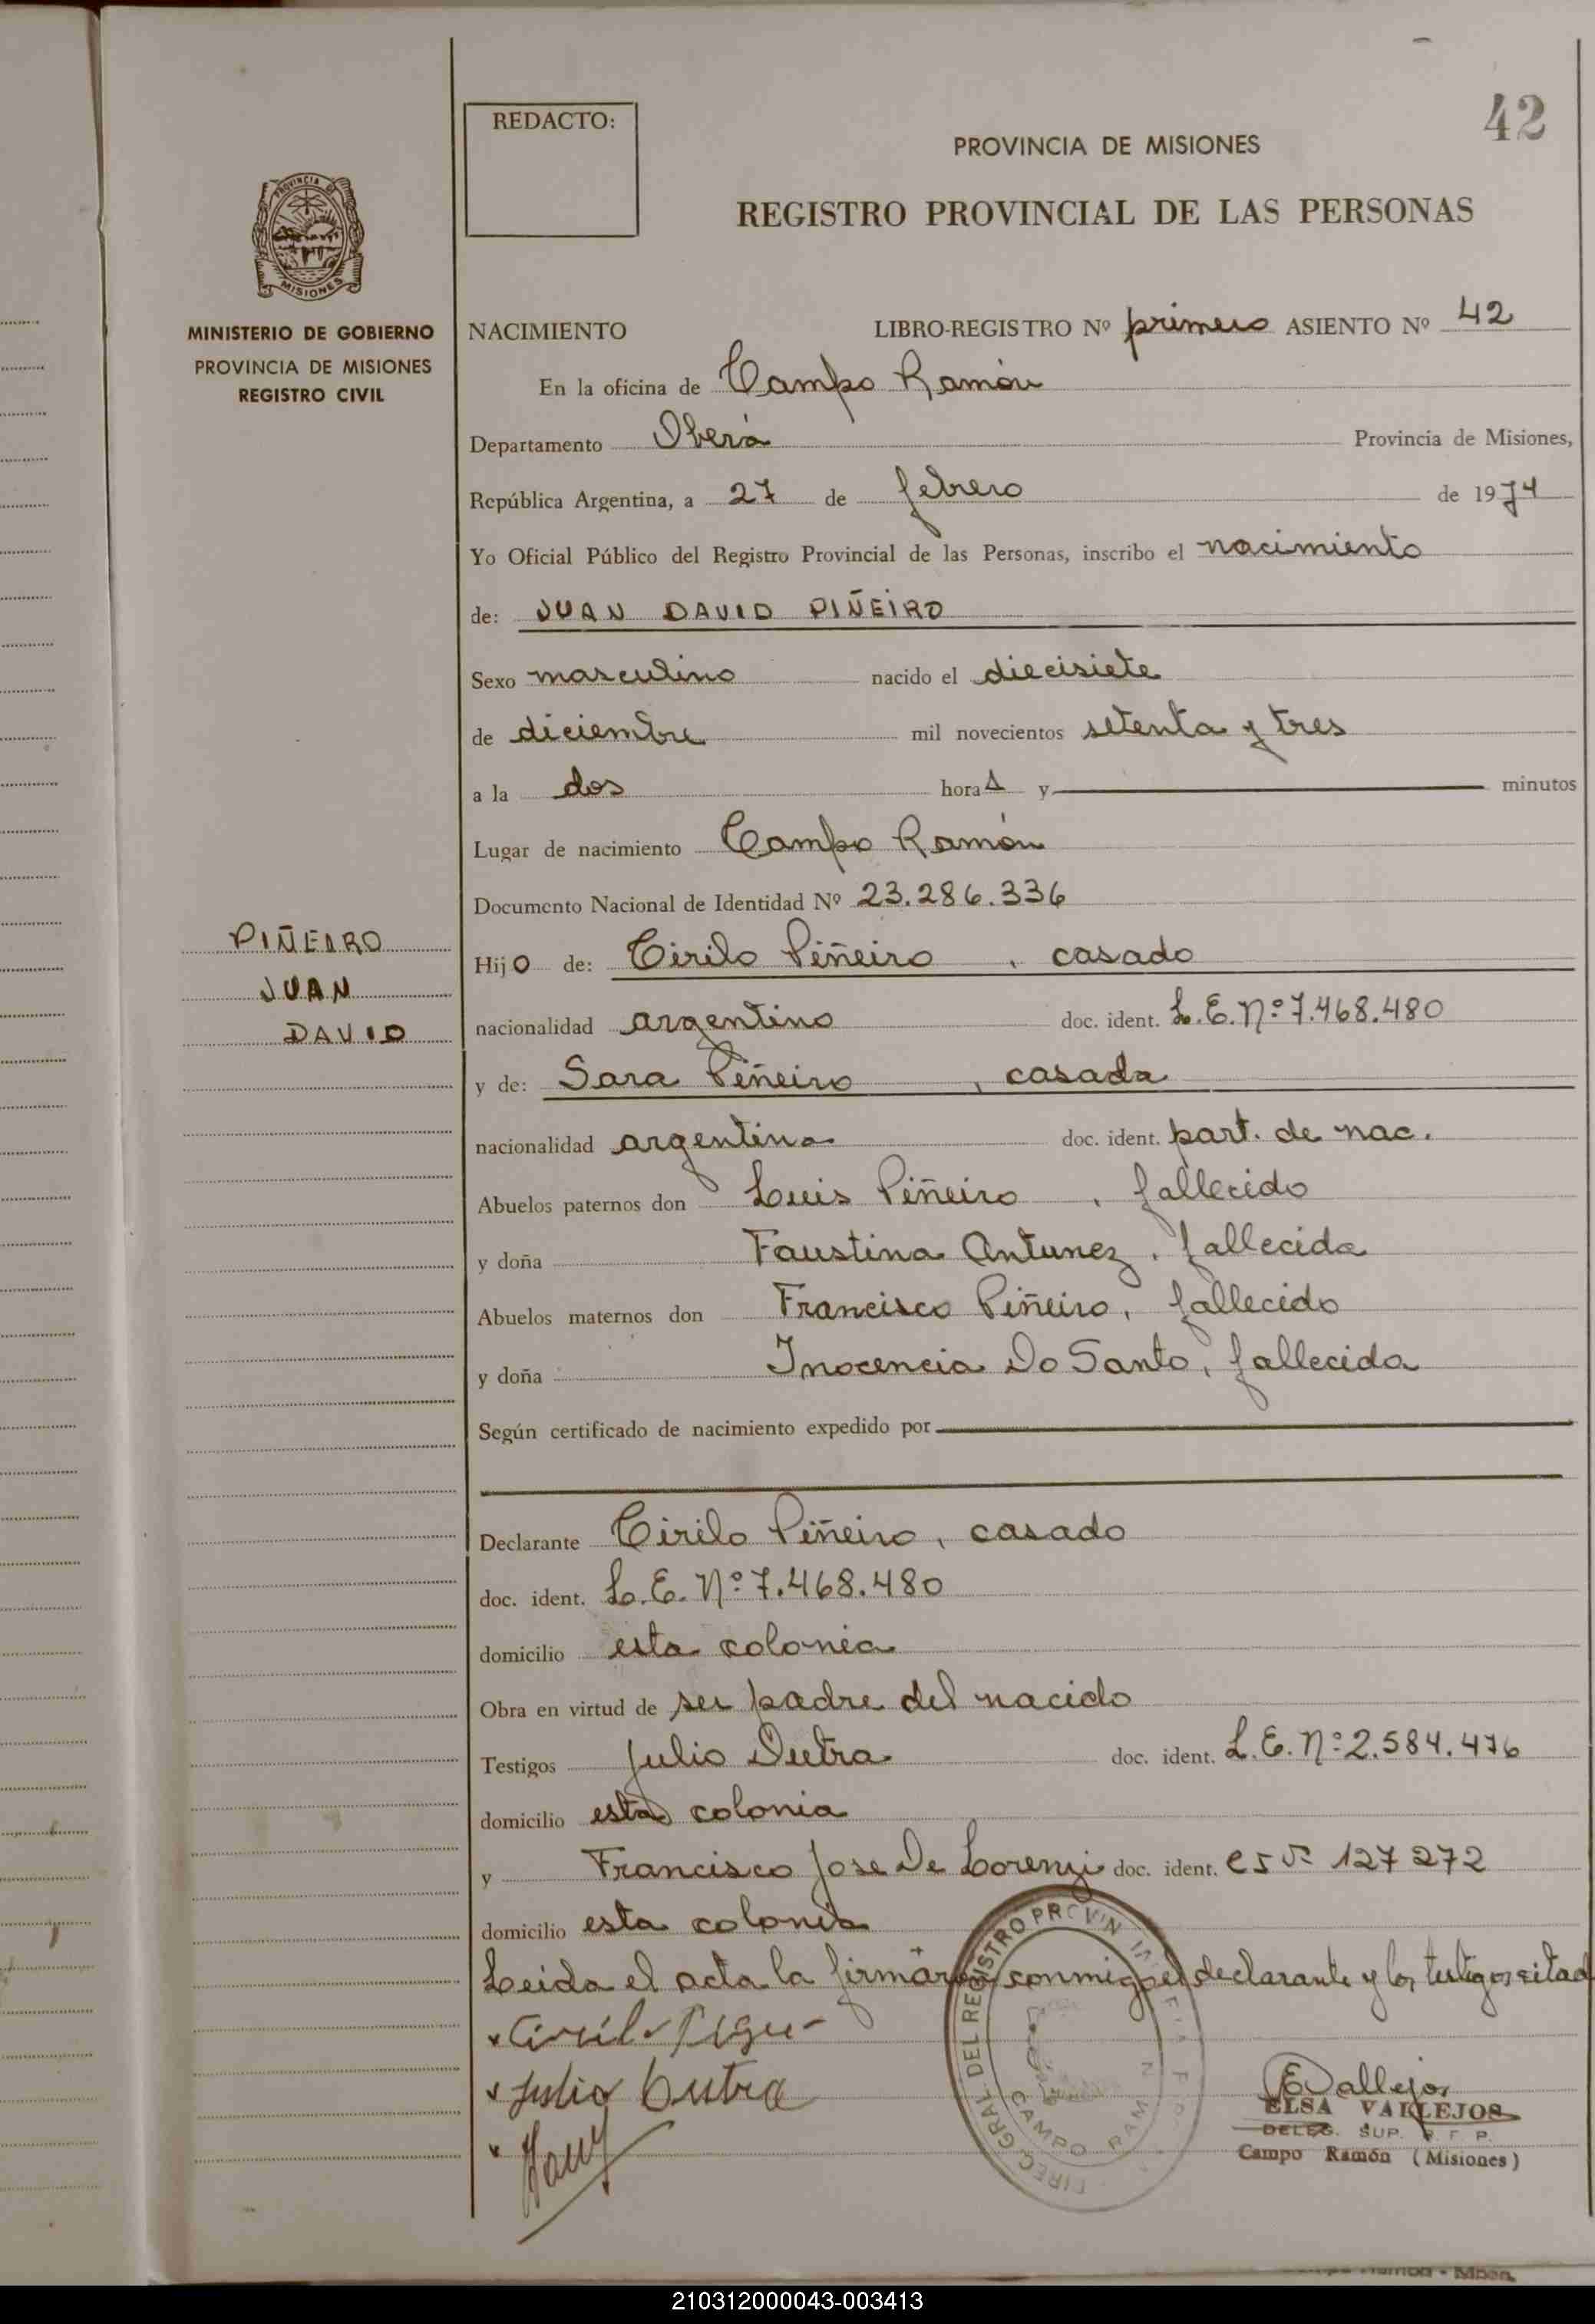 42
REDACTO:
PROVINCIA DE MISIONES
REGISTRO PROVINCIAL DE LAS PERSONAS
PROVINCIA DE
MISIONES
MINISTERIO DE GOBIERNO
PROVINCIA DE MISIONES
REGISTRO CIVIL
NACIMIENTO LIBRO-REGISTRO Nº primero ASIENTO Nº 42
En la oficina de Campo Ramón
Departamento Oberá Provincia de Misiones,
República Argentina, a 27 de febrero de 1974
Yo Oficial Público del Registro Provincial de las Personas, inscribo el nacimiento
de: JUAN DAVID PIÑEIRO
Sexo masculino nacido el diecisiete
de diciembre mil novecientos setenta y tres
a la dos horas y minutos
Lugar de nacimiento Campo Ramón
Documento Nacional de Identidad Nº 23.286.336
PIÑEIRO
JUAN
DAVID
Hijo de: Cirilo Piñeiro, casado
nacionalidad argentino doc. ident. L.E.Nº 7.468.480
y de: Sara Piñeiro, casada
nacionalidad argentina doc. ident. part. de nac.
Abuelos paternos don Luis Piñeiro, fallecido
y doña Faustina Antunez, fallecida
Abuelos maternos don Francisco Piñeiro, fallecido
y doña Inocencia Do Santo, fallecida
Según certificado de nacimiento expedido por
Declarante Cirilo Piñeiro, casado
doc. ident. L.E. Nº 7.468.480
domicilio esta colonia
Obra en virtud de ser padre del nacido
Testigos Julio Dutra doc. ident. L.E. Nº 2.584.476
domicilio esta colonia
y Francisco Jose De Lorenzi doc. ident. 127272
domicilio esta colonia
Leida el acta la firmáron conmigo el declarante y los testigos citad
Julio Dutra
DIREC. GRAL. DEL REGISTRO PROVIN
CAMPO RAMON
EVallejos
ELSA VALLEJOS
DELEG. SUP. R. F. P.
Campo Ramón (Misiones)
210312000043-003413